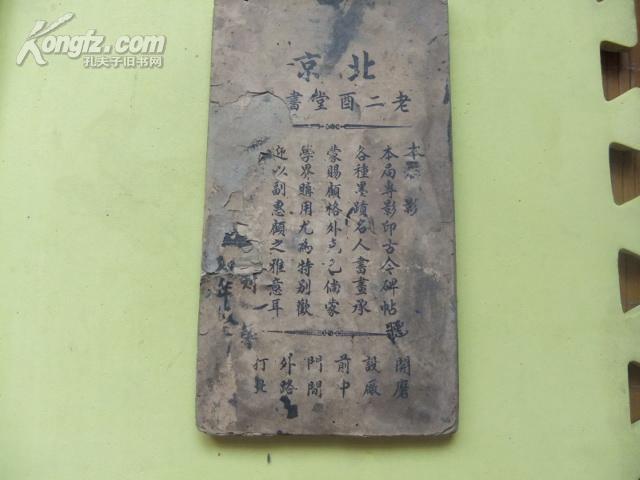 Kongfz.com
孔夫子旧书网
北京
老二酉堂書
本 影
本局專影印古今碑帖
各種墨蹟名人書畫承
蒙賜顧格外克己儒家
學界購用尤為特別歡
迎以副惠顧之雅意耳
開設前門外打
磨廠中間路北